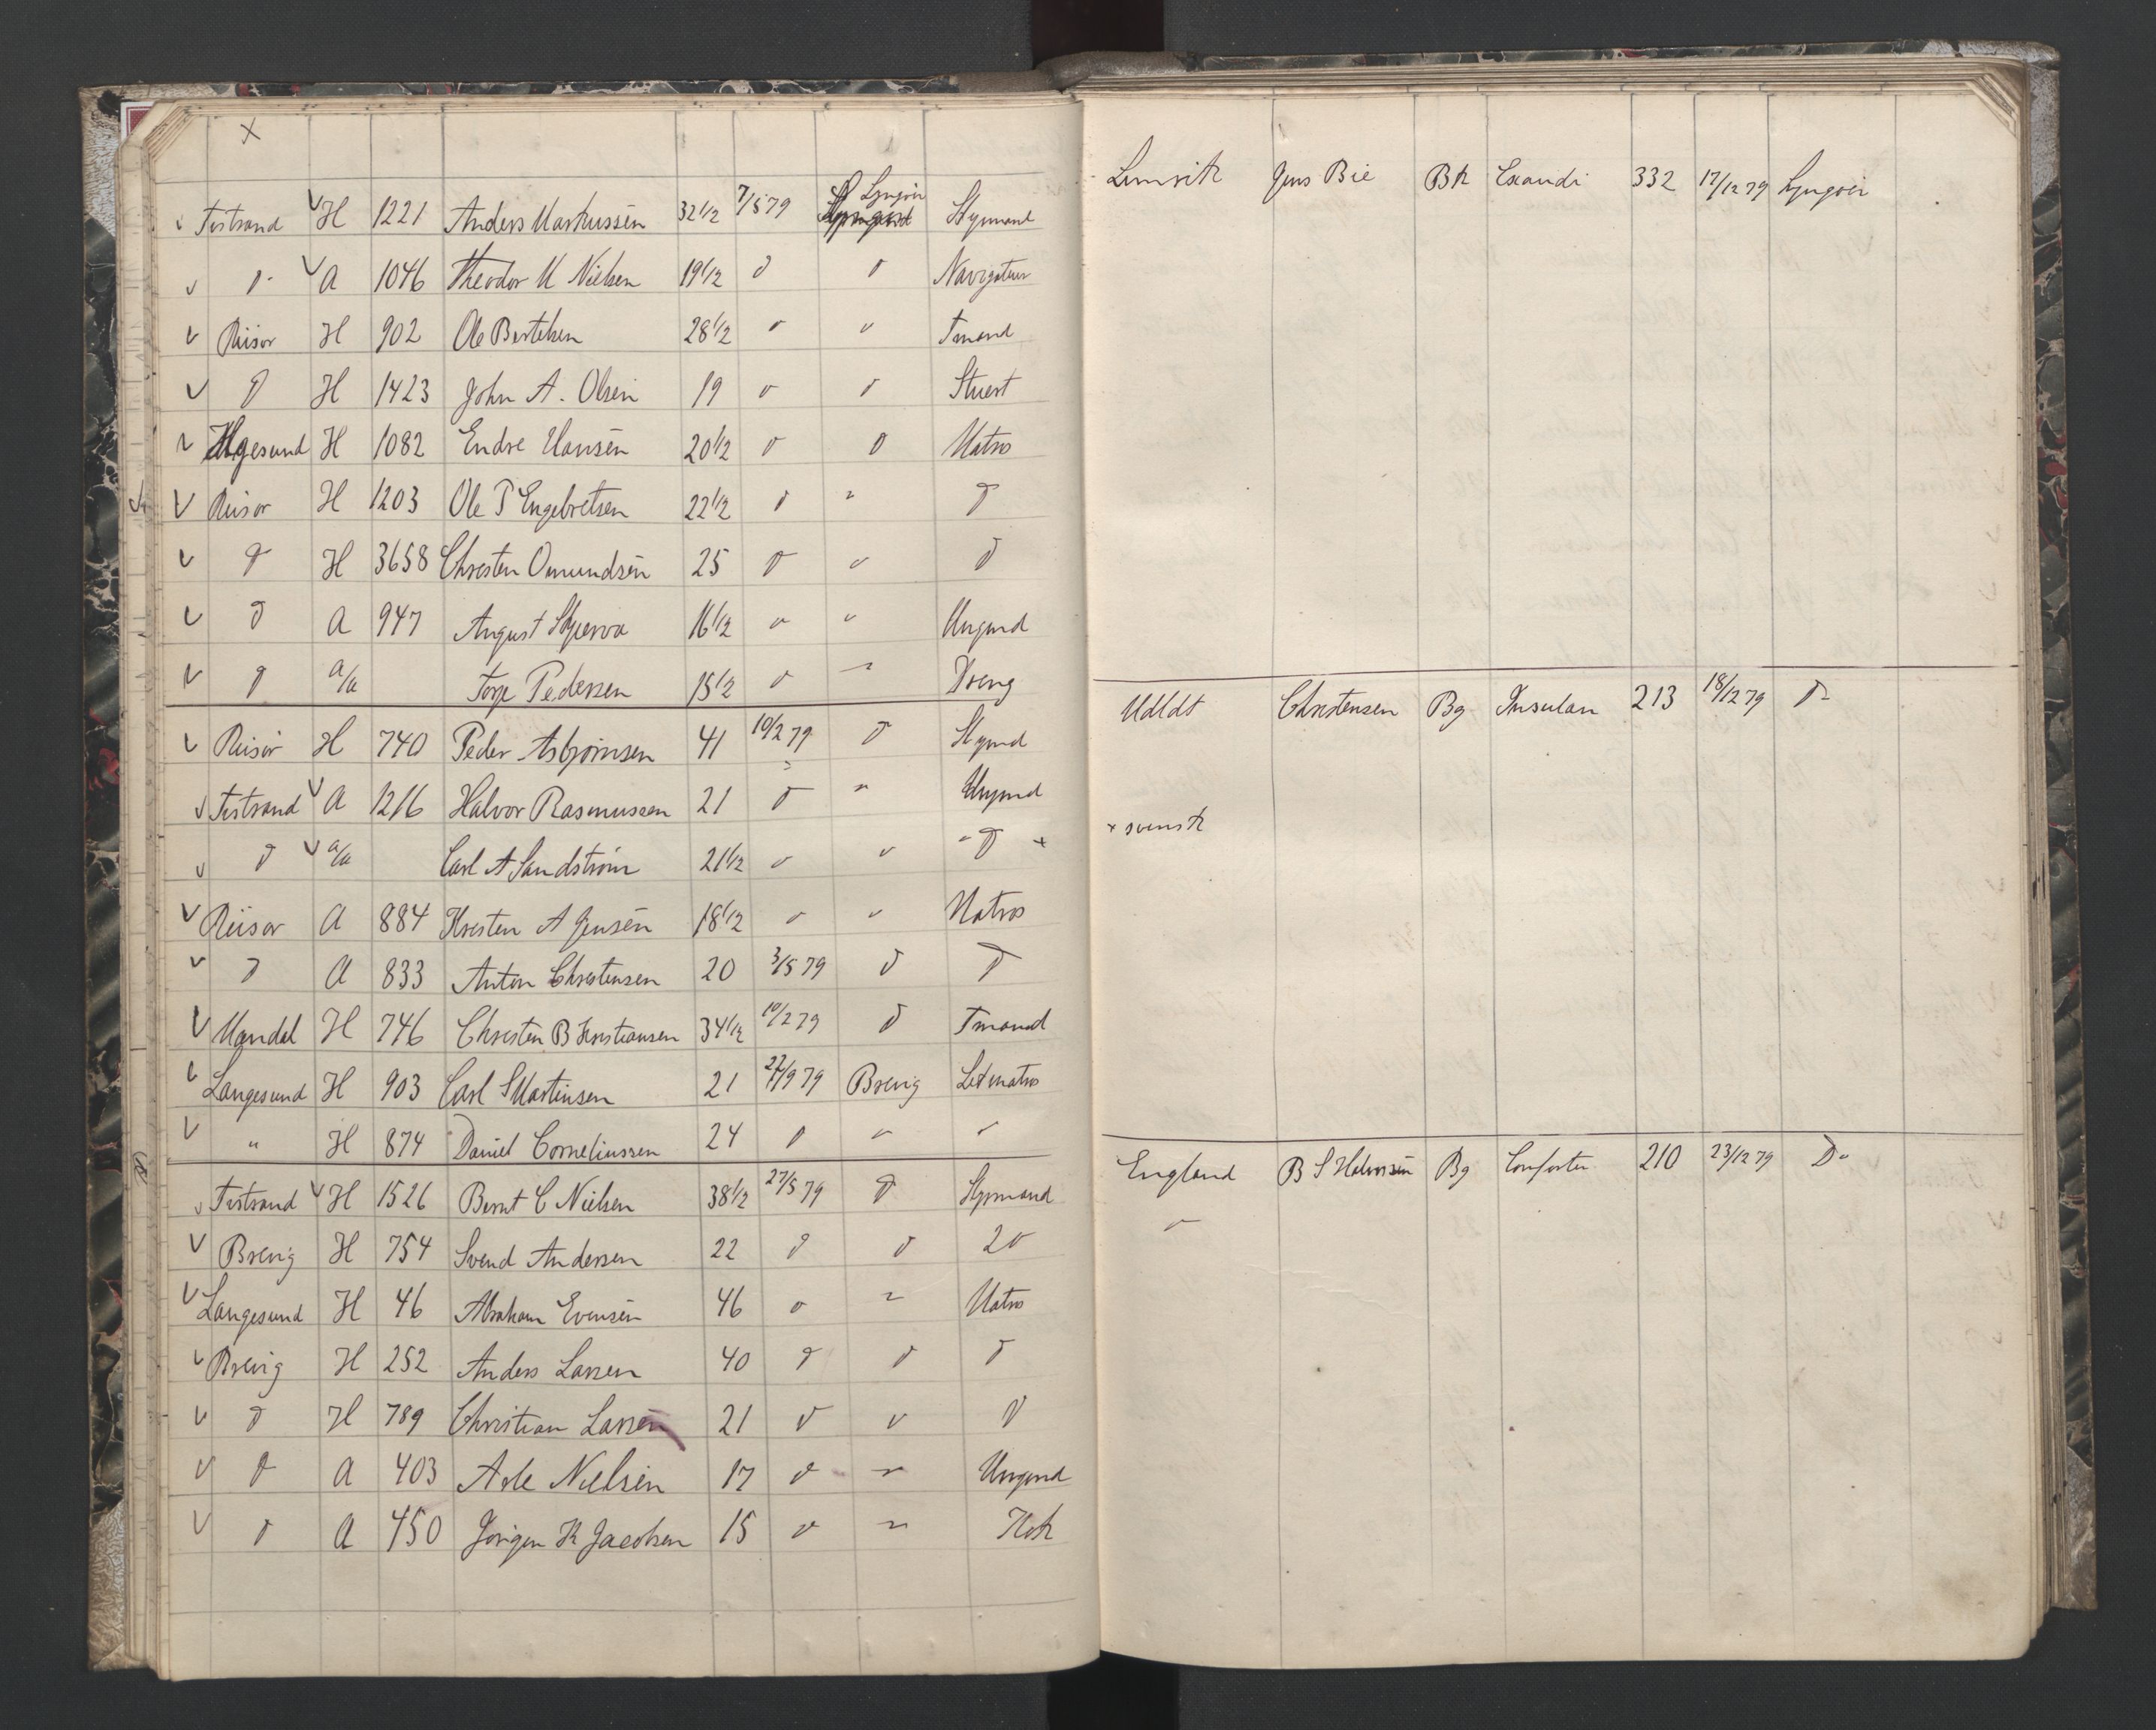 x
Tvstrand H 1221 Anders Markussen 32 1/2 7/5 79 Lyngör Styrmand
d A 1046 Theodor M Nielsen 19 1/2 d d Navigateur
Riisør H 902 Ole Bertelsen 28 1/2 d d Tmand
d H 1423 John A. Olsen 19 d d Stuert
Hgesund H 1082 Endre Hansen 20 1/2 d d Matros
Riisør H 1203 Ole T Engebretsen 22 1/2 d " d
d H 3658 Christen Omundsen 25 d " d
d A 947 August 16 1/2 " " Ungmd
d a/a Torje Pedersen 15 1/2 d " Dreng
Riisør H 740 Peder Asbjørnsen 41 10/2 79 d Stymd
Tvstrand A 1216 Halvor Rasmussen 21 d " Ungmd
d a/a Carl A Sandström 21 1/2 d " d x
Riisør A 884 Kristen A Jensen 18 1/2 " " Matros
d A 833 Anton Christensen 20 3/5 79 d d
Mandal H 746 Christen B Kristiansen 34 1/2 10/2 79 d Tmand
Langesund H 903 Carl S Martinsen 21 /9 79 Brevig Letmatros
" H 874 Daniel Corneliussen 24 d " "
Tvstrand H 1526 Bernt C Nielsen 38 1/2 27/5 79 d Styrmand
Brevig H 754 Svend Andersen 22 d d 2d
Langesund H 46 Abraham Evensen 46 d " Matros
Brevig H 252 Anders Larsen 40 d d d
d H 789 Christian Larsen 21 d " d
d A 403 Asle Nielsen 17 d " Ungmd
d A 450 Jörgen K Jacobsen 15 d " Kok
Lemvik Jens Bie Bk Exaudi 332 17/12 79 Lyngöer
Udldt Christensen Bg Insulan 213 18/12 79 D-
x svensk
England B S Halvorsen Bg Comforter 210 23/12 79 D-